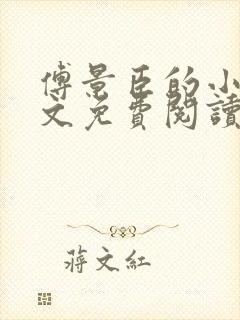 傅景臣的小
文免費閱讀
蔣文紅